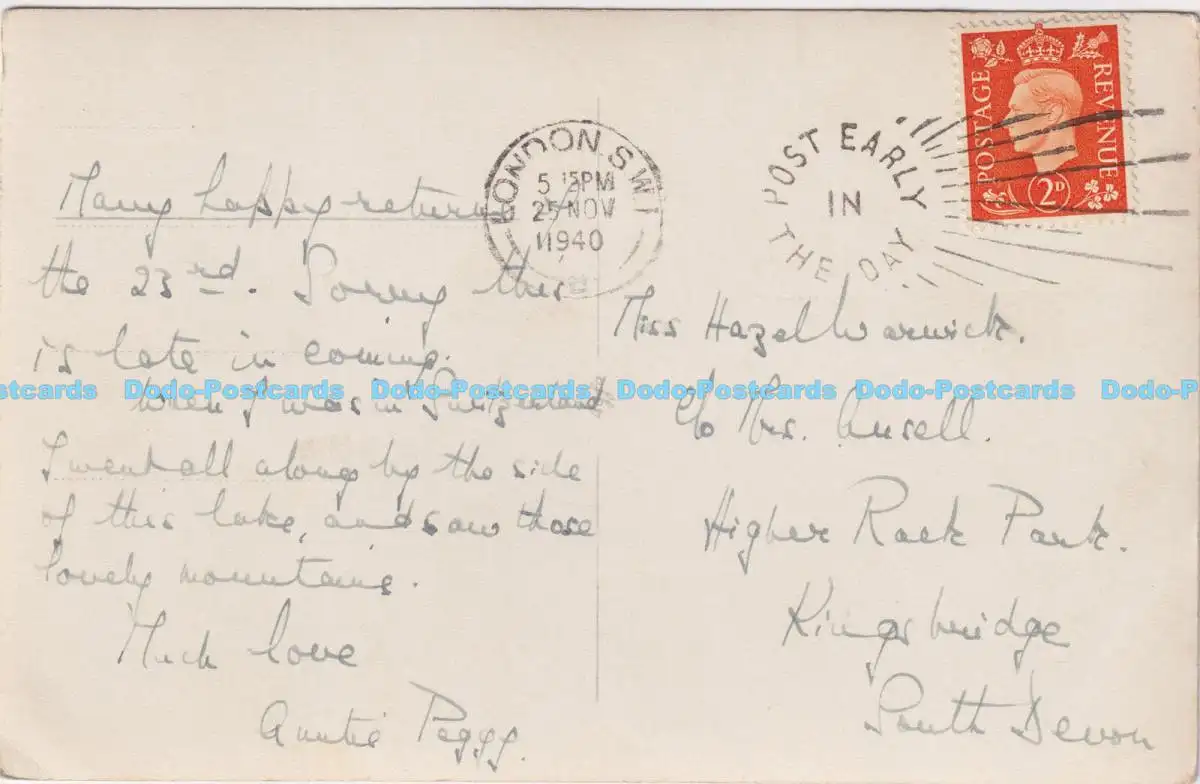 Many happy returns
the 23rd. Sorry this
is late in coming.
When I was in Switzerland
I went all along by the side
of this lake, and saw those
lovely mountains.
Much love
Auntie Peggy.
LONDON.S.W.1
5 15PM
25 NOV
1940
POST EARLY
IN
THE DAY
POSTAGE
REVENUE
2D
Miss Hazel Warwick.
c/o Mrs. Ansell.
Higher Rack Park.
Kingsbridge
South Devon
Dodo-Postcards Dodo-Postcards Dodo-Postcards Dodo-Postcards Dodo-Postcards